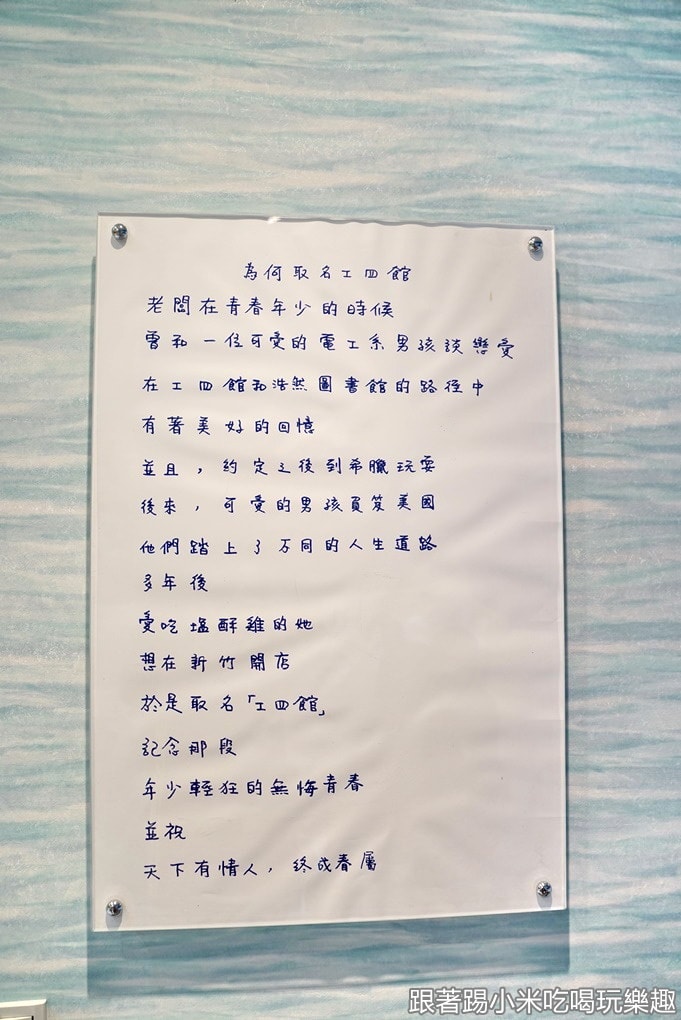 為何取名工四館
老闆在青春年少的時候
曾和一位可愛的電工系男孩談戀愛
在工四館和浩然圖書館的路徑中
有著美好的回憶
並且，約定之後到希臘玩耍
後來，可愛的男孩負笈美國
他們踏上了不同的人生道路
多年後
愛吃塩酥雞的她
想在新竹開店
於是取名「工四館」
記念那段
年少輕狂的無悔青春
並祝
天下有情人，終成眷屬
跟著踢小米吃喝玩樂趣